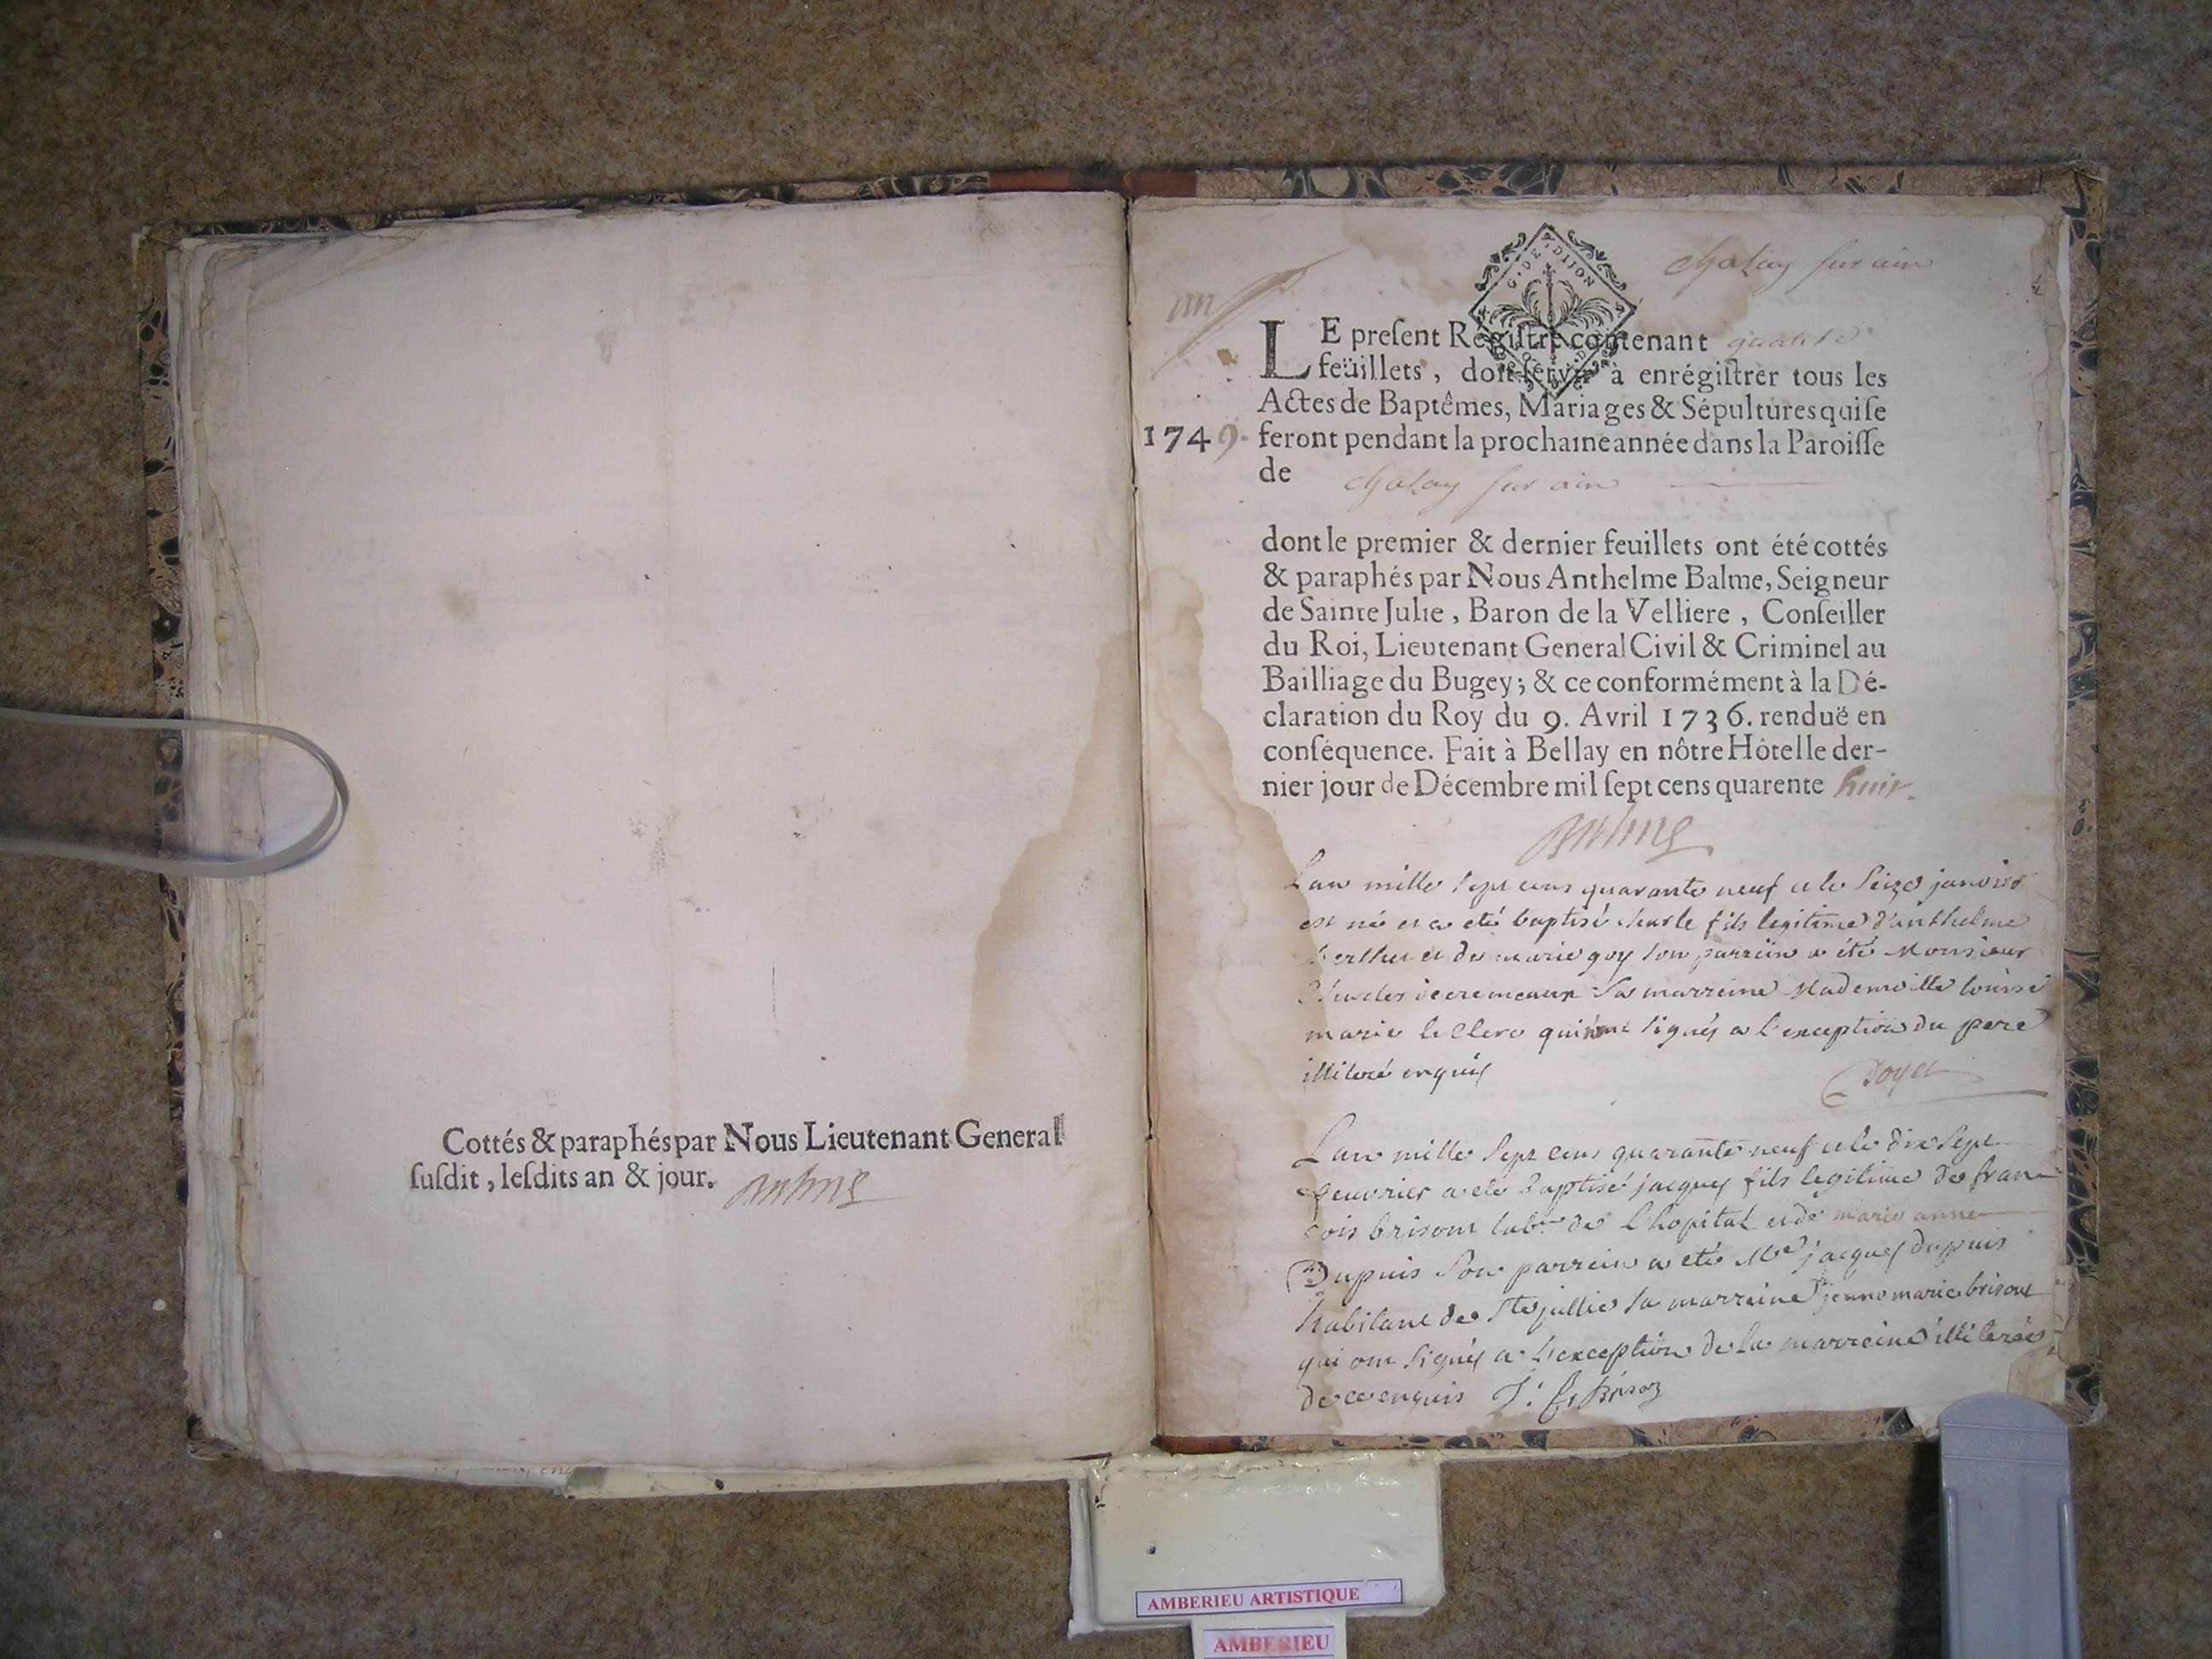 Cottés & paraphés par Nous Lieutenant General
susdit, lesdits an & jour. Balme
un
G. DE DIJON
chazay sur ain
LE present Régistre contenant quatre
feüillets, doit servir à enrégistrer tous les
Actes de Baptêmes, Mariages & Sépultures qui se
1749. feront pendant la prochaine année dans la Paroisse
de chazay sur ain
dont le premier & dernier feuillets ont été cottés
& paraphés par Nous Anthelme Balme, Seigneur
de Sainte Julie, Baron de la Velliere, Conseiller
du Roi, Lieutenant General Civil & Criminel au
Bailliage du Bugey; & ce conformément à la Dé-
claration du Roy du 9. Avril 1736. renduë en
conséquence. Fait à Bellay en nôtre Hôtel le der-
nier jour de Décembre mil sept cens quarente huit.
Balme
Lan mille sept cens quarante neuf et le seize janvier
est né et a eté baptisé charle fils legitime d'anthelme
berthet et de marie goy son parrein a été Monsieur
Charles decremeaux sa marreine Mademoille louise
marie le Clerc qui ont signés a l'exception du pere
illiteré enquis
Doyet
Lan mille sept cens quarante neuf et le dix sept
feuvrier a eté Baptisé jacques fils legitime de fran
cois brison lab.r de l'hopital et de marie anne
Dupuis son parrein a eté M.e jacques dupuis
habitant de Ste jullie sa marreine jeanne marie brison
qui ont signés a l'exception de la marreine illiterée
de ce enquis
AMBERIEU ARTISTIQUE
AMBERIEU